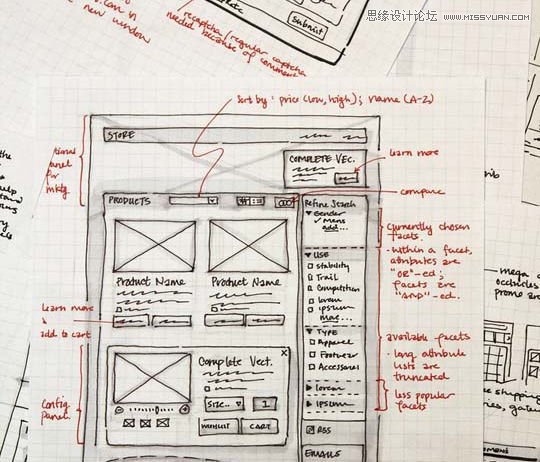 思缘设计论坛 WWW.MISSYUAN.COM
can in
new window
recaptcha/regular captcha
needed because of comment
Submit
Sort by: price (low, high); name (A-Z)
STORE
COMPLETE VEC.
learn more
compare
PRODUCTS
Refine Search
Gender
Mens
add...
currently chosen
facets.
• within a facet,
attributes are
"OR"-ed;
facets are
"AND"-ed.
USE
Stability
Trail
Competition
lorem
ipsum
Product Name
Product Name
learn more
add to cart
TYPE
Apparel
Footwear
available facets
• long attribute
lists are
truncated
Complete Vect.
SIZE..
1
WISHLIST
CART
Config.
panel.
lorem
ipsum
less popular
facets
RSS
EMAILS
mega